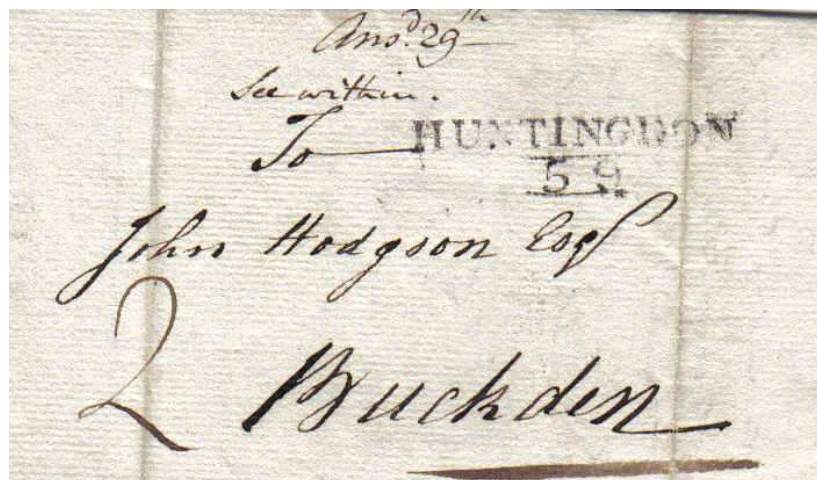 Ansd. 29th
See within.
To HUNTINGDON
59
John Hodgson Esqr
2 Buckden